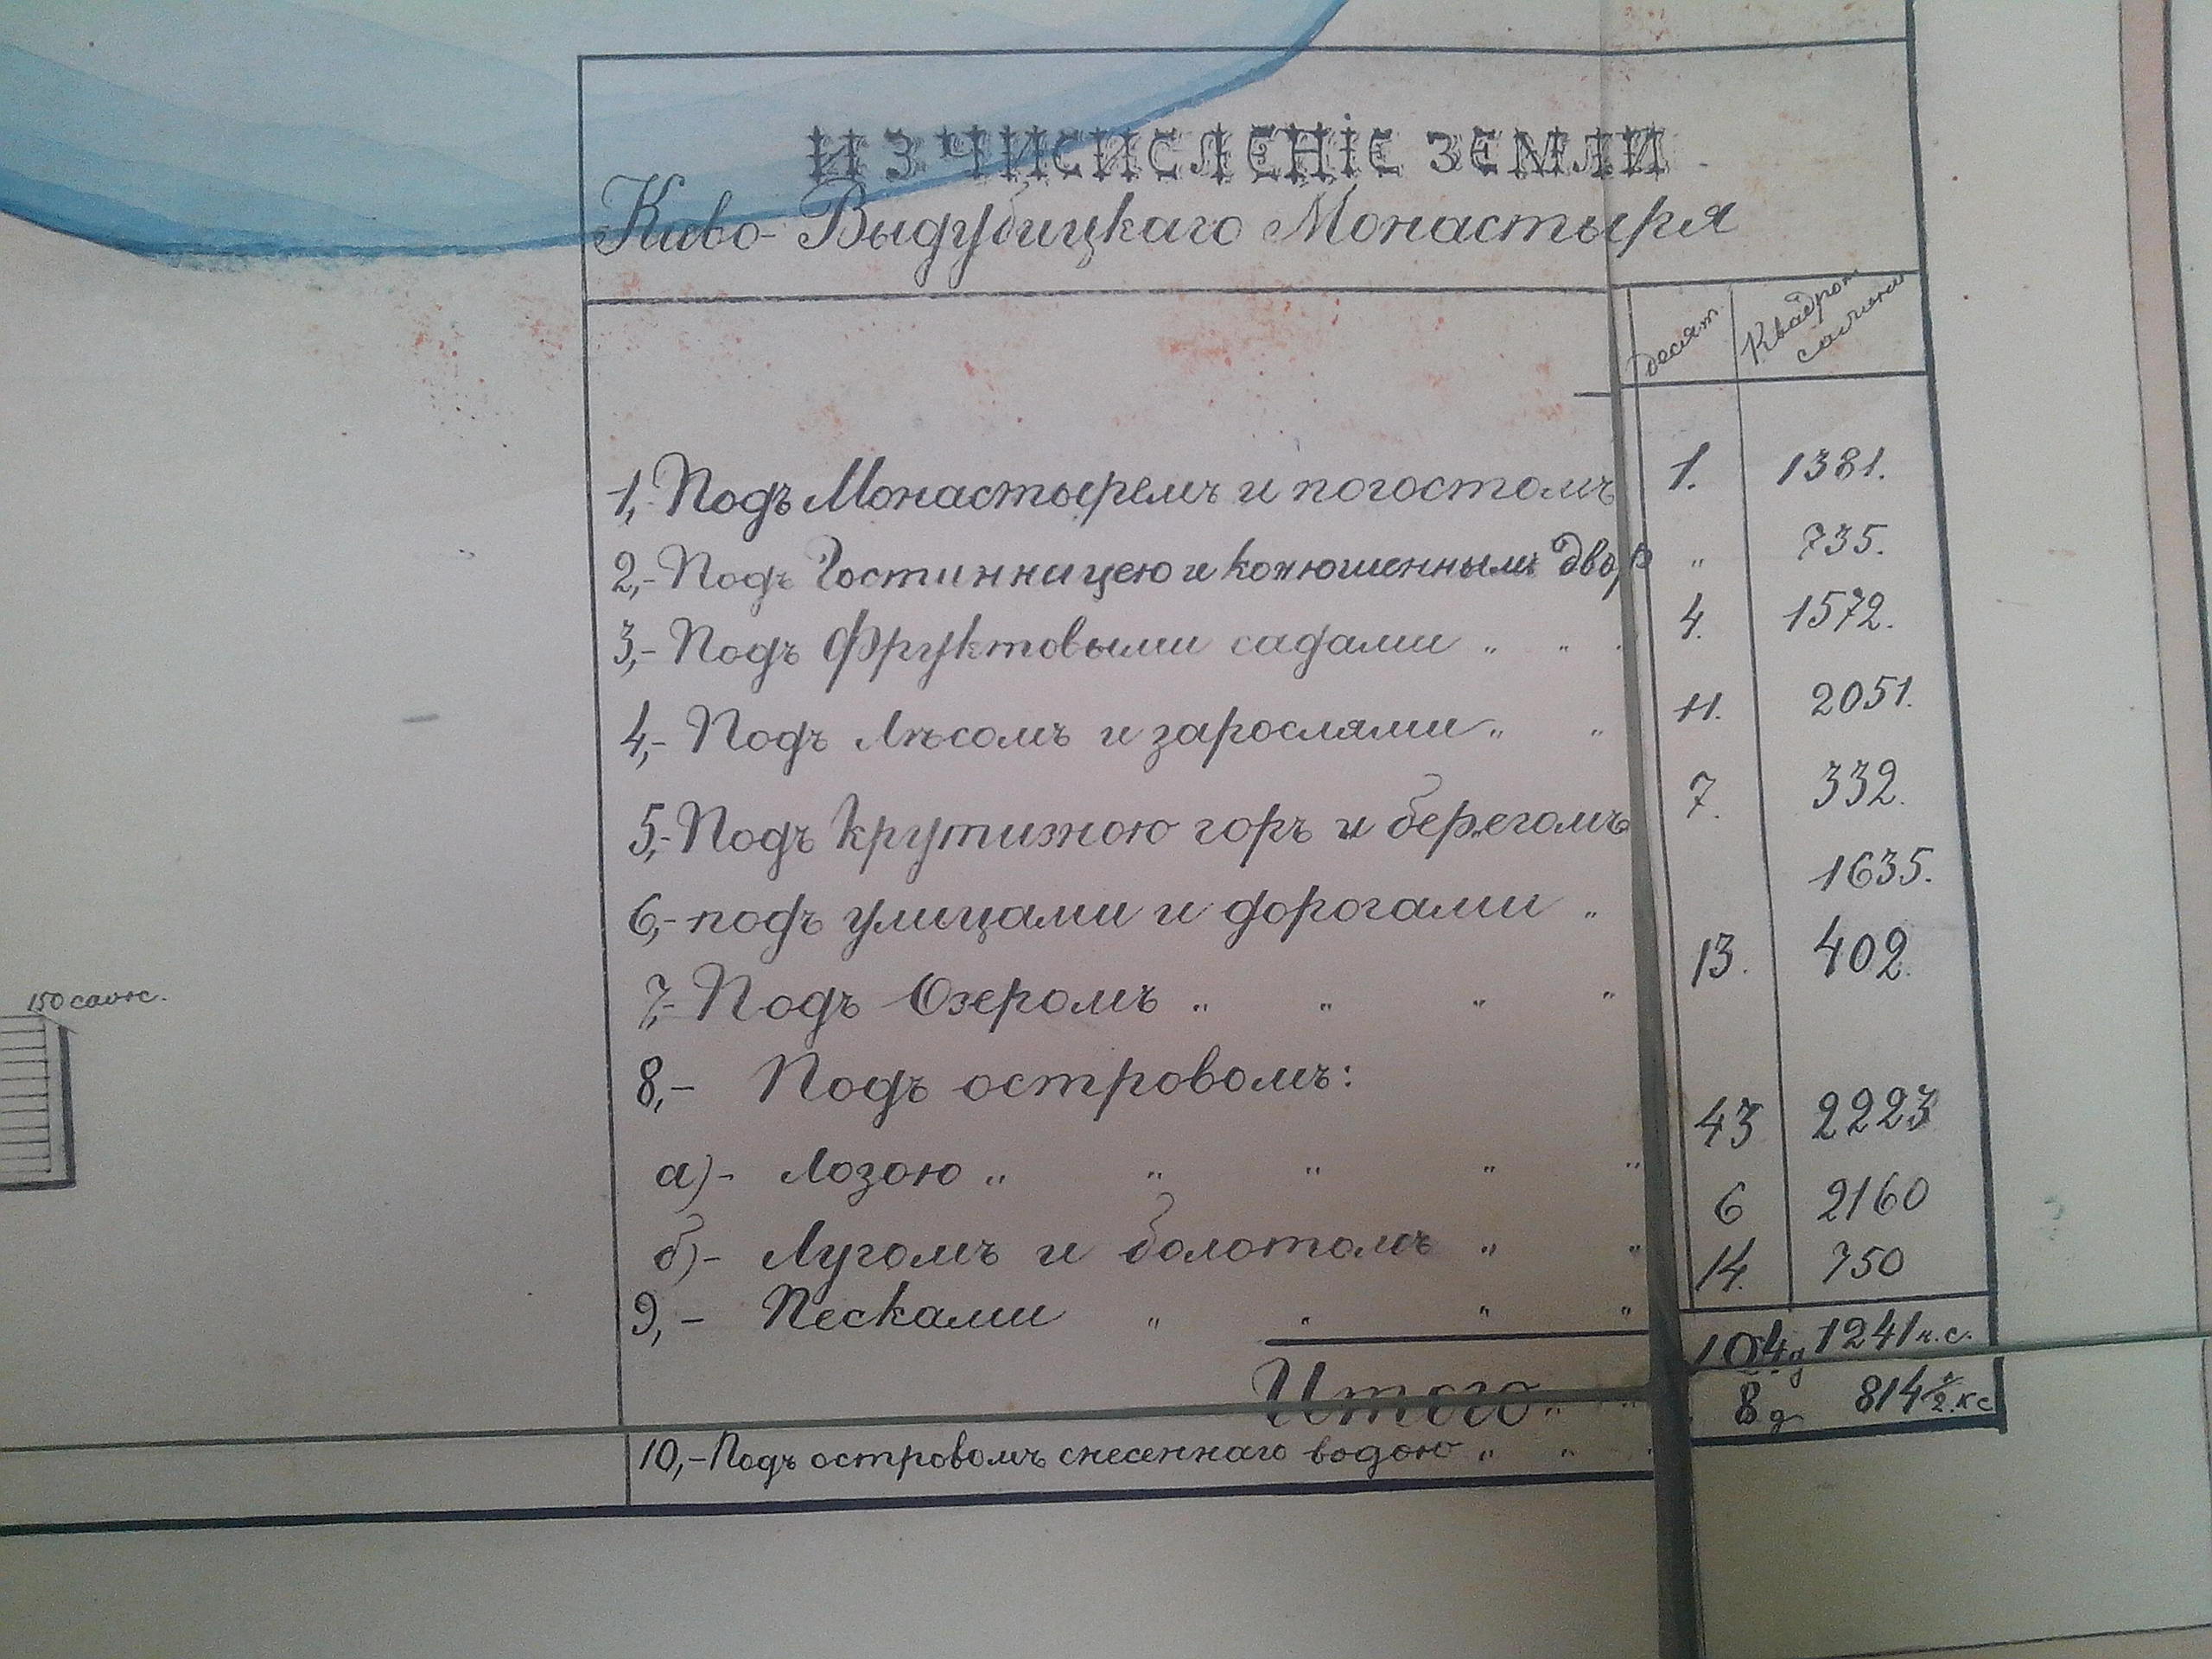 ИЗЧИСИСЛЕНІЕ ЗЕМЛИ
Киво-Выдубицкаго Монастыря
десят. Квадрат. сажени
1,-Подъ Монастыремъ и погостомъ 1. 1381.
2,-Подъ Гостинницею и конюшеннымъ двор " 735.
3,-Подъ Фруктовыми садами " " " 4. 1572.
4,-Подъ Лѣсомъ и зарослями " " 11. 2051.
5,-Подъ Крутизною горъ и берегомъ 7. 332.
6,-подъ улицами и дорогами " 1635.
7,-Подъ Озеромъ " " " " 13. 402.
8,- Подъ островомъ:
а)- Лозою " " " " " 43 2223
б)- Лугомъ и болотомъ " " 6 2160
9,- Песками " " " " 14. 750
Итого " " 104д 1241к.с.
10,-Подъ островомъ снесеннаго водою " " " 8д 814½.кс
150 саж.